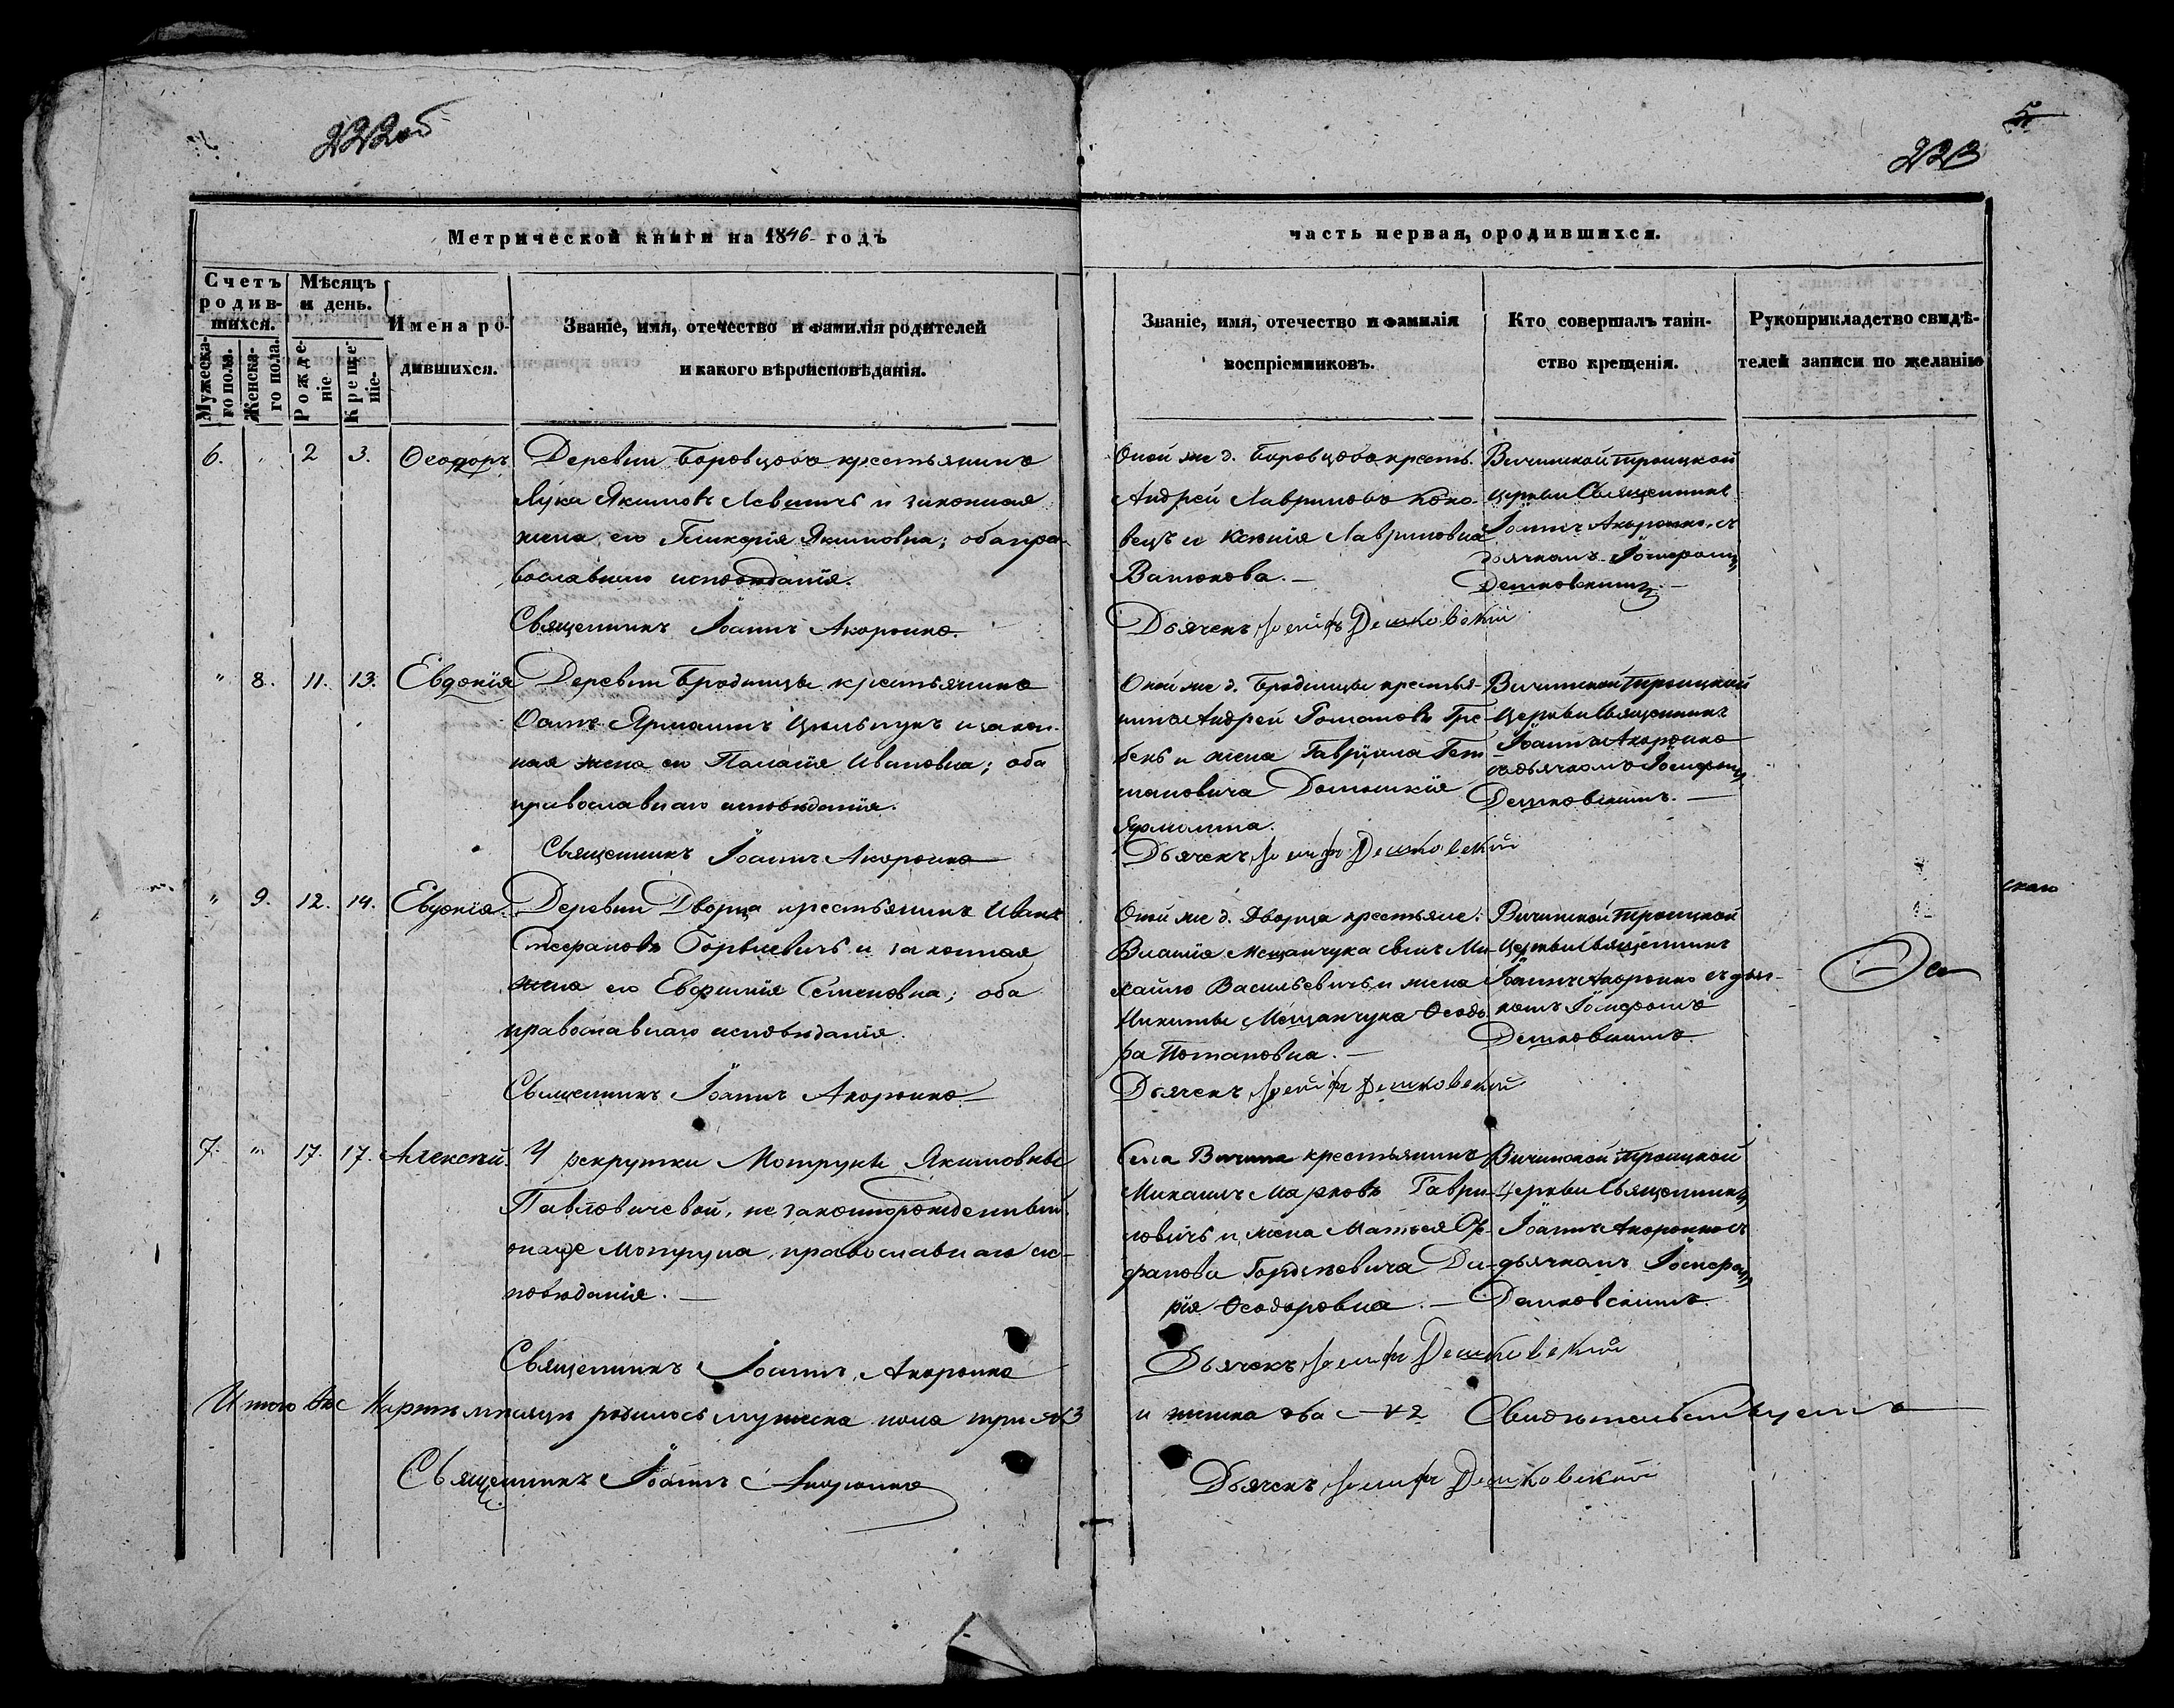 222об
5
223
Метрической книги на 1846 годъ
часть первая, ородившихся.
Счетъ родив-шихся.
Мѣсяцъ и день.
Мужеска-го пола.
Женска-го пола.
Рожде-ніе
Креще-ніе.
Имена ро-дившихся.
Званіе, имя, отечество и фамилія родителей
и какого вѣроисповѣданія.
Званіе, имя, отечество и фамилія
воспріемниковъ.
Кто совершалъ таин-
ство крещенія.
Рукоприкладство свидѣ-
телей записи по желанію
6. 2 3. Ѳеодоръ Деревни Боровцовъ крестьянинъ
Лука Якимовъ Левшичъ и законная
жена его Гликерія Якимовна; оба пра-
вославнаго исповѣданія.
Священникъ Іоаннъ Акоронко.
Оной же д. Боровцовъ кресть.
Андрей Лавриновъ
и Ксенія Лавриновна
Ванюкова.
Дьячекъ Іосифъ Дешковскій
Вичинской Троицкой
церкви Священникъ
Іоаннъ Акоронко съ
дьячкомъ Іосифомъ
Дешковскимъ.
" 8. 11. 13. Евдокія Деревни Бродницы крестьянинъ
и закон-
ная жена его Палагія Ивановна; оба
православнаго исповѣданія.
Священникъ Іоаннъ Акоронко
Оной же д. Бродницы крестья-
нинъ Андрей Романовъ Гре-
бень и жена Гавріила
Домникія
Ярмолина.
Дьячекъ Іосифъ Дешковскій
Вичинской Троицкой
Церкви Священникъ
Іоаннъ Акоронко
съ дьячкомъ Іосифомъ
Дешковскимъ.
" 9. 12. 14. Евдокія. Деревни Дворца крестьянинъ Иванъ
Стефановъ и законная
жена его Евфимія Семеновна; оба
православнаго исповѣданія.
Священникъ Іоаннъ Акоронко
Оной же д. Дворца крестьяне:
Власія Мещанчука сынъ Ми-
хайло Васильевичъ и жена
Никиты Мещанчука Ѳеодо-
ра Потаповна.
Дьячекъ Іосифъ Дешковскій
Вичинской Троицкой
Церкви Священникъ
Іоаннъ Акоронко съ дьяч-
комъ Іосифомъ
Дешковскимъ
скаго
7. " 17. 17. Алексѣй. У рекрутки Мотруны Якимовны
Павловичевой, незаконнорожденный
онаже Мотруна, православнаго ис-
повѣданія.
Священникъ Іоаннъ Акоронко
Села Вичина крестьянинъ
Михаилъ Марковъ Гаври-
ловичъ и жена Матвея
Да-
рія Ѳеодоровна.
Дьячекъ Іосифъ Дешковскій
Вичинской Троицкой
Церкви Священникъ
Іоаннъ Акоронко съ
дьячкомъ Іосифомъ
Дешковскимъ.
Итого въ Мартѣ мѣсяцѣ родилось мужеска пола три № 3
и женска два № 2 Свидѣтельствуемъ
Священникъ Іоаннъ Акоронко
Дьячекъ Іосифъ Дешковскій